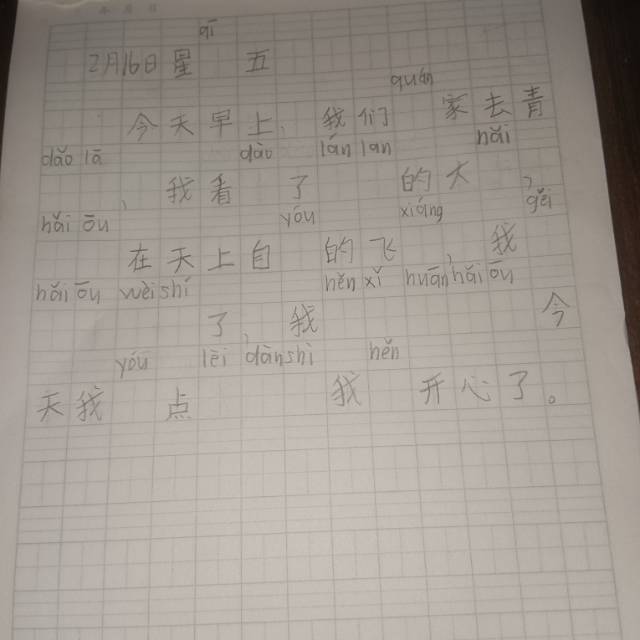 qī
2月16日星 五
quán
今天早上,我们 家去青
dǎo lā dào lán lan hǎi
,我看 了 的大 ,
hǎi ōu yóu xiáng gěi
在天上自 的飞,我
hǎi ōu wèi shí hěn xǐ huān hǎi ōu
了,我 今
yóu lēi dàn shì hěn
天我 点 我 开心了。